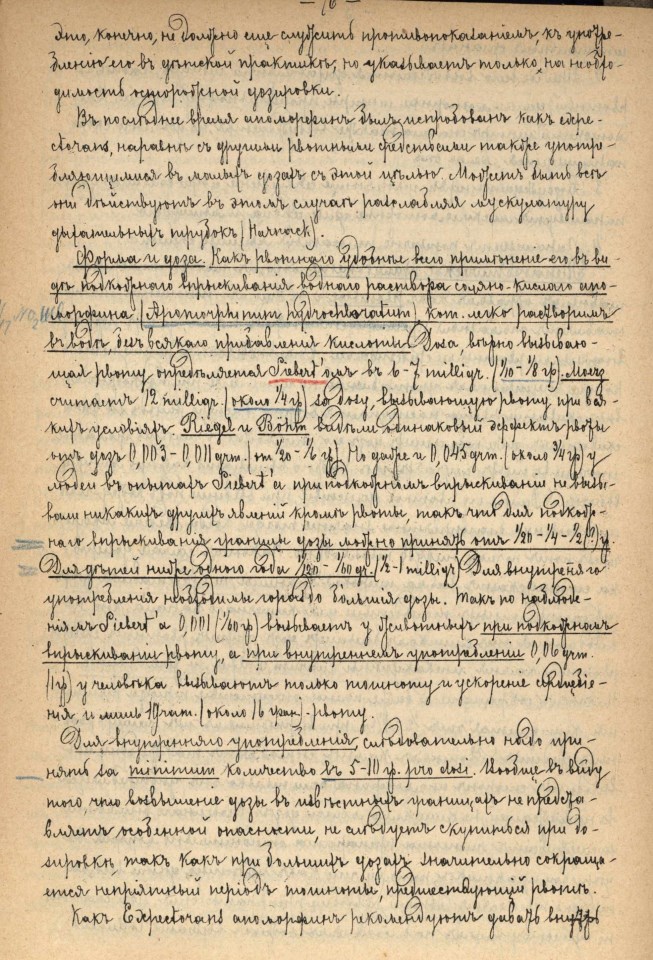 – 76 –
это, конечно, не должно еще служить противопоказаніемъ, къ употре-
бленію его въ дѣтской практикѣ, но указываетъ только, на необхо-
димость осторожной дозировки.
Въ послѣднее время апоморфинъ былъ испробованъ какъ expe-
ctorans, наравнѣ съ другими рвотными средствами также употре-
бляющимися въ малыхъ дозахъ съ этой цѣлью. Можетъ быть всѣ
они дѣйствуютъ въ этомъ случаѣ разслабляя мускулатуру
дыхательныхъ трубокъ (Harnack).
Форма и доза. Какъ рвотнаго удобнѣе всего примѣненіе его въ ви-
дѣ подкожнаго впрыскиванія воднаго раствора соляно-кислаго апо-
морфина (Apomorphinum hydrochloratum), кот. легко растворимъ
въ водѣ, безъ всякаго прибавленія кислоты. Доза, вѣрно вызываю-
щая рвоту опредѣляется Siebert'омъ въ 6-7 milligr. (1/10 - 1/8 gr). Moerz
считаетъ 12 milligr. (около 1/4 gr) за дозу, вызывающую рвоту при вся-
кихъ условіяхъ. Riegel и Böhm видѣли одинаковый эффектъ рвоты
отъ дозъ 0,003 - 0,011 grm. (от 1/20 - 1/6 gr). Но даже и 0,045 grm. (около 3/4 gr) у
людей въ опытахъ Siebert'а при подкожномъ впрыскиваніи не вызы-
вали никакихъ другихъ явленій кромѣ рвоты, такъ что для подкож-
наго впрыскиванія границы дозы можно принять отъ 1/20 - 1/4 - 1/2 (?) gr.
Для дѣтей ниже одного года 1/120 - 1/60 gr. (1/2 - 1 milligr.) Для внутренняго
употребленія необходимы гораздо большія дозы. Такъ по наблюде-
ніямъ Siebert'а 0,001 (1/60 gr) вызываетъ у животныхъ при подкожномъ
впрыскиваніи рвоту, а при внутреннемъ употребленіи 0,06 grm.
(1 gr) у человѣка вызываютъ только тошноту и ускореніе сердцебіе-
нія, и лишь 1 gram. (около 16 гран) - рвоту.
Для внутренняго употребленія, слѣдовательно надо при-
нять за minimum количество въ 5-10 gr. pro dosi. Вообще въ виду
того, что возвышеніе дозы въ извѣстныхъ границахъ не предста-
вляетъ особенной опасности, не слѣдуетъ скупиться при до-
зировкѣ, такъ какъ при большихъ дозахъ значительно сокраща-
ется непріятный періодъ тошноты, предшествующій рвотѣ.
Какъ Expectorans апоморфинъ рекомендуютъ давать внутрь